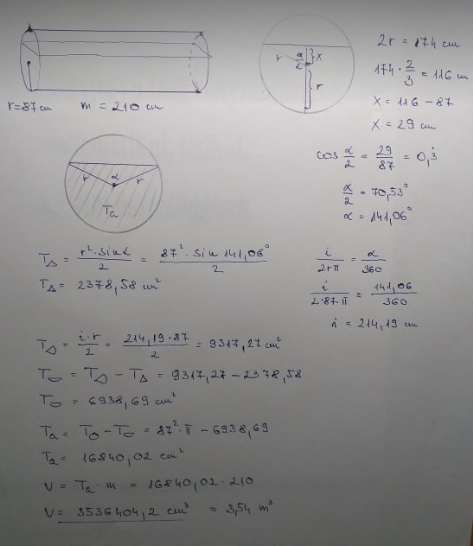 r=87cm   m = 210 cm
α/2   x
r   r
2r = 174 cm
174 · 2/3 = 116 cm
x = 116 - 87
x = 29 cm
cos α/2 = 29/87 = 0,3̇
α/2 = 70,53°
α = 141,06°
r   α   r
Ta
T△ = r² · sin α / 2 = 87² · sin 141,06° / 2
T△ = 2378,58 cm²
i / 2rπ = α / 360
i / 2·87·π = 141,06 / 360
i = 214,19 cm
T⌔ = i·r / 2 = 214,19 · 87 / 2 = 9317,27 cm²
T⌓ = T⌔ - T△ = 9317,27 - 2378,58
T⌓ = 6938,69 cm²
Ta = T○ - T⌓ = 87² · π - 6938,69
Ta = 16840,02 cm²
V = Ta · m = 16840,02 · 210
V = 3536404,2 cm³ ≈ 3,54 m³